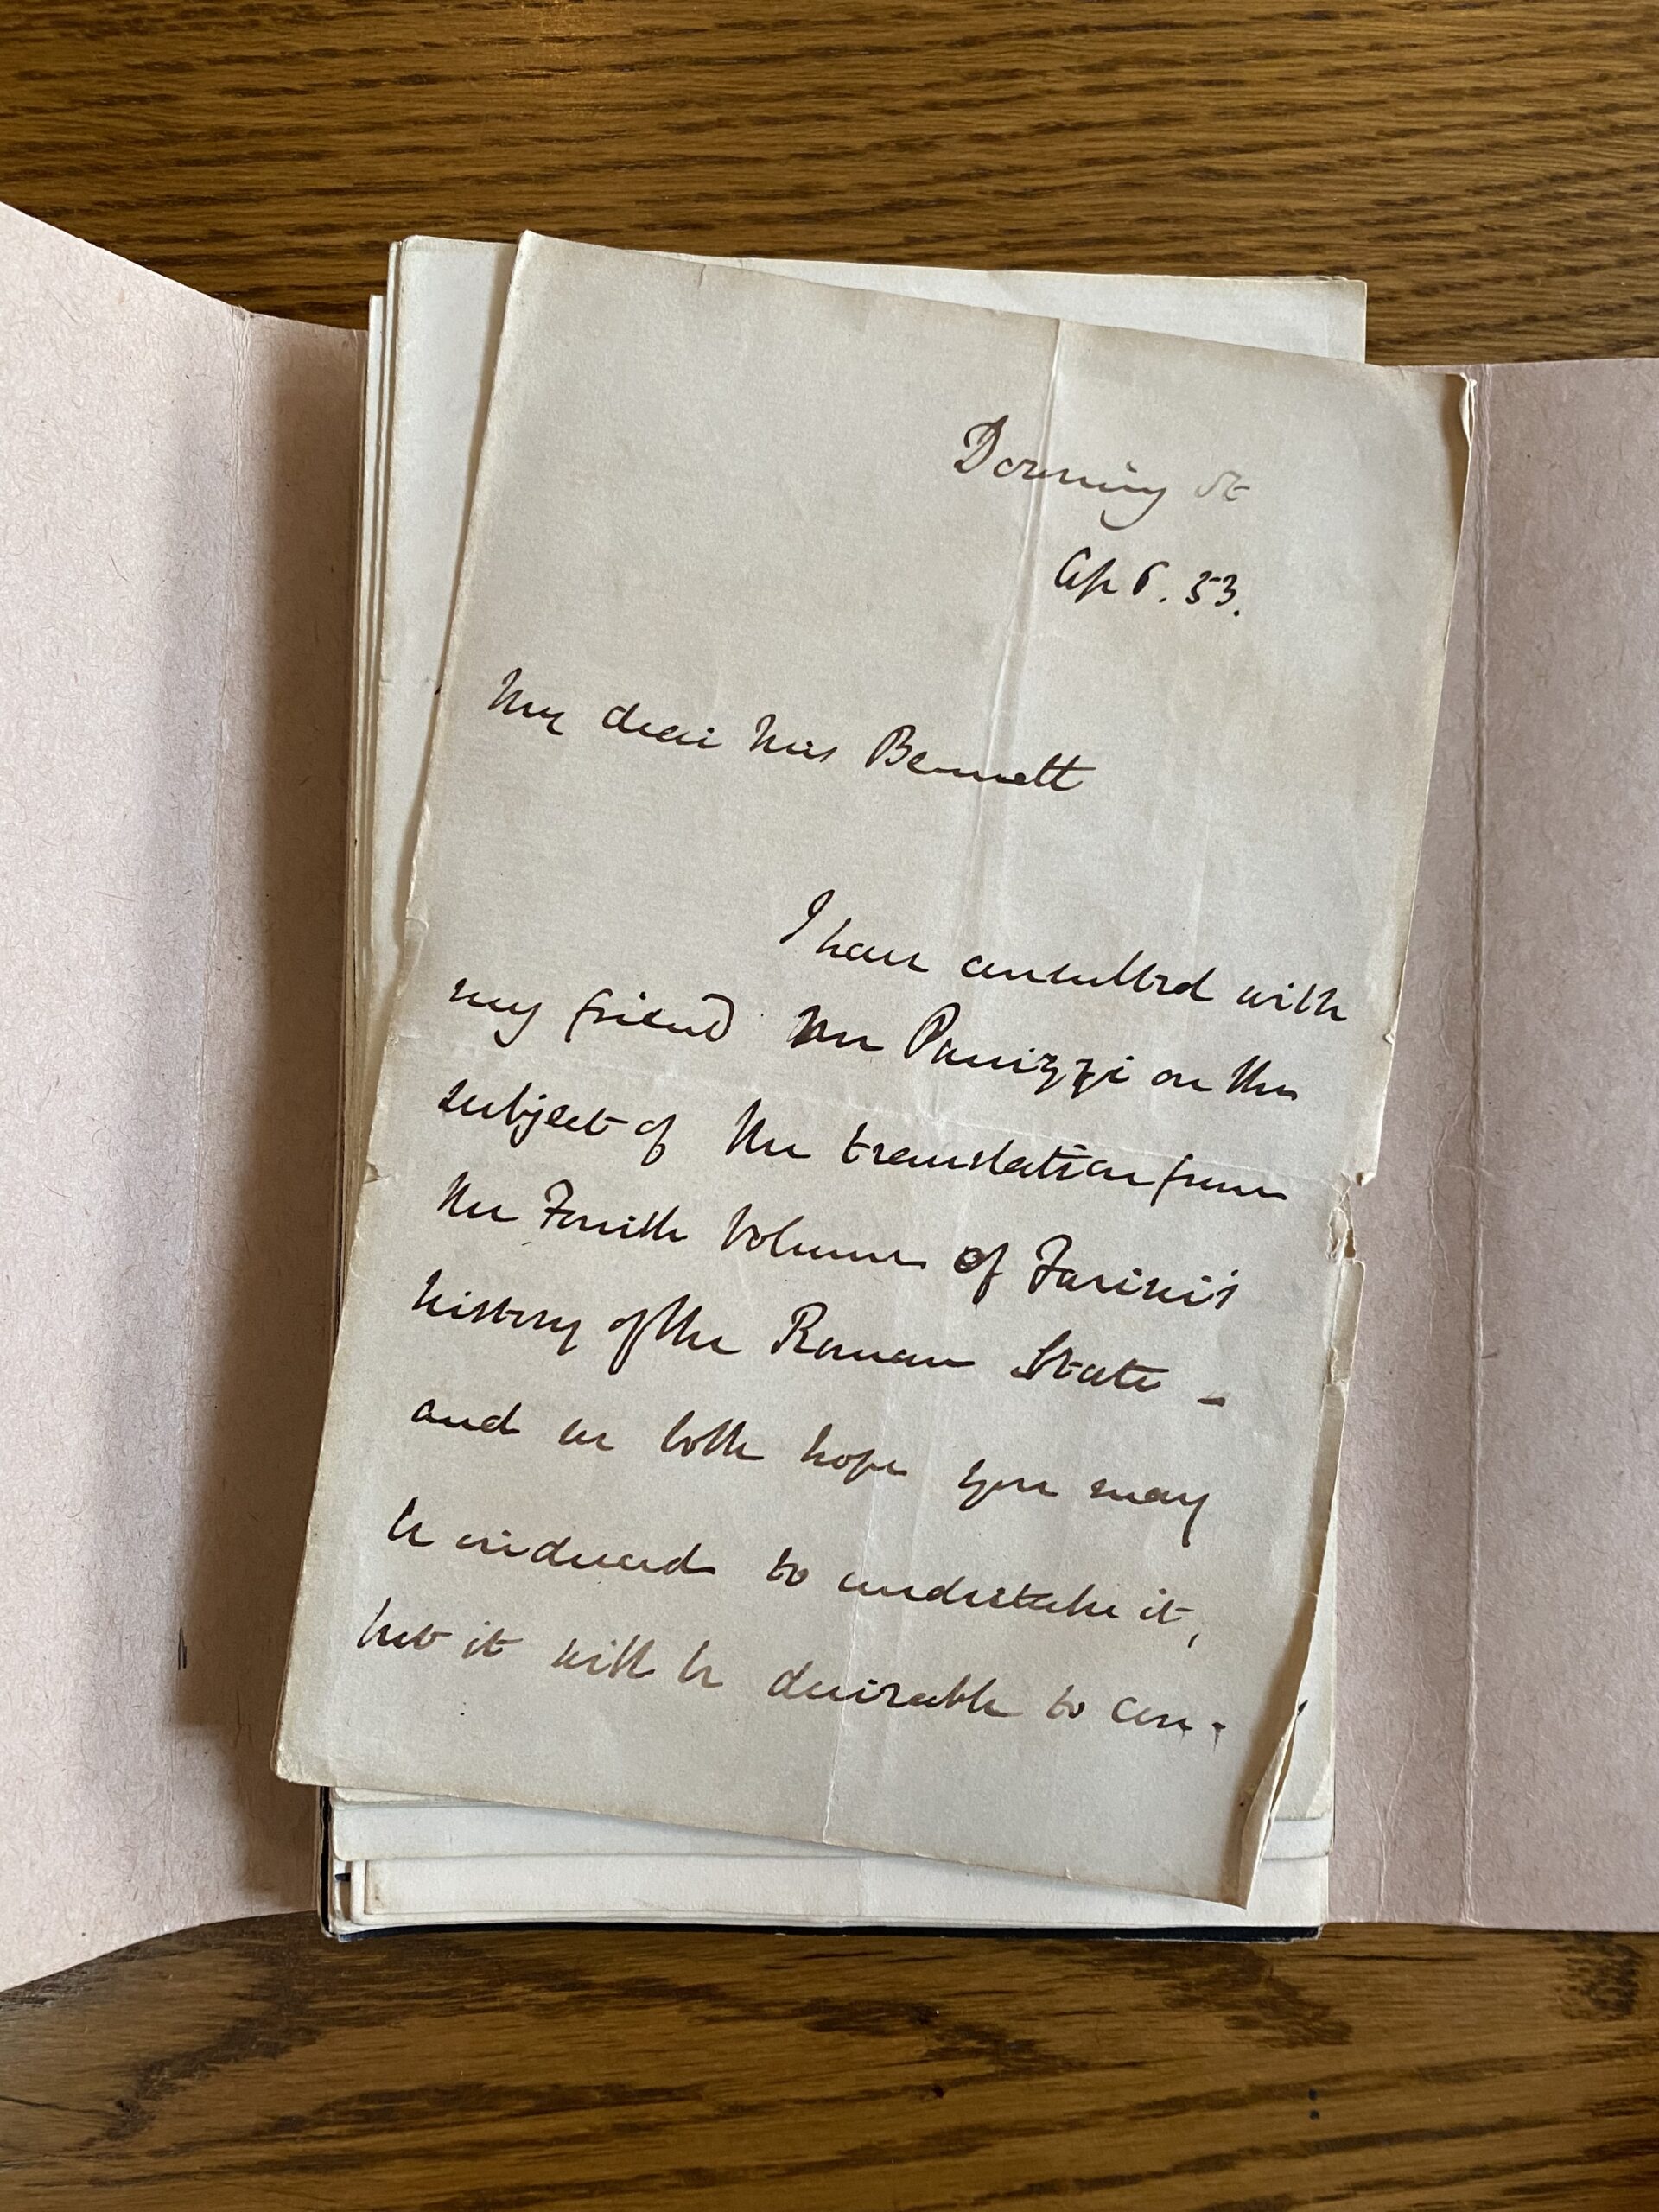 Downing St
Ap 6. 53.
My dear Miss Bennett
I have consulted with
my friend Mr Panizzi on the
subject of the translation from
the Fourth Volume of Farini's
history of the Roman State –
and we both hope you may
be induced to undertake it,
but it will be desirable to con-